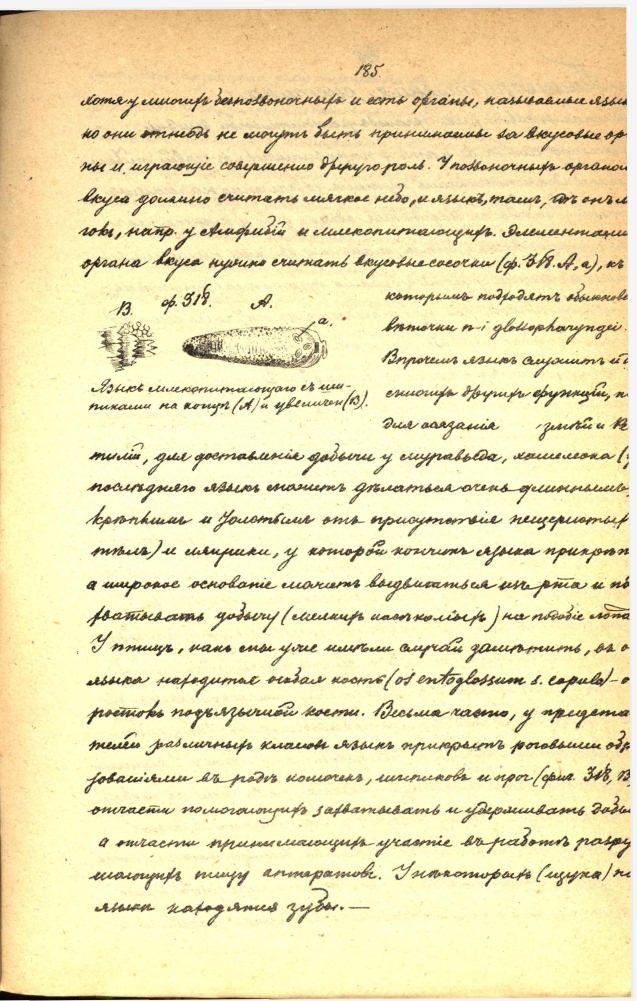 185.
хотя у многихъ безпозвоночныхъ и есть органы, называемые язы
но они отнюдь не могутъ быть принимаемы за вкусовые ор
ны и играющіе совершенно другую роль. У позвоночныхъ органо
вкуса должно считать мягкое небо, и языкъ, тамъ, гдѣ онъ м
гокъ, напр. у Амфибій и млекопитающихъ. Элементами
органа вкуса нужно считать вкусовые сосочки (ф. 318. А, а), къ
которымъ подходятъ обыкнове
вѣточки n-i glossopharyngei.
Впрочемъ языкъ служитъ и
другихъ функцій,
для осязанія змѣи и
В. ф. 318. А.
а.
Языкъ млекопитающаго съ ши-
пиками на концѣ (А) и увеличен (В).
тиліи, для доставленія добычи у муравьѣда, хамелеона (
послѣдняго языкъ можетъ дѣлаться очень длиннымъ,
крѣпкимъ и толстымъ отъ присутствія пещеристы
тѣлъ) и лягушки, у которой кончикъ языка прикрѣп
а широкое основаніе можетъ выдвигаться изъ рта и по
хватывать добычу (мелкихъ насѣкомыхъ) на подобіе лопа
У птицъ, какъ мы уже имѣли случай замѣтить, въ о
языка находится особая кость (os entoglossum s. copula) – о
ростокъ подъязычной кости. Весьма часто, у предста
телей различныхъ классовъ языкъ прикрытъ роговыми обр
зованіями въ родѣ иголочекъ, шипиковъ и проч (фиг. 318, В
отчасти помогающихъ захватывать и удерживать добы
а отчасти принимающихъ участіе въ работѣ разру
шающихъ пищу аппаратовъ. У нѣкоторыхъ (щука) н
языкѣ находятся зубы. —